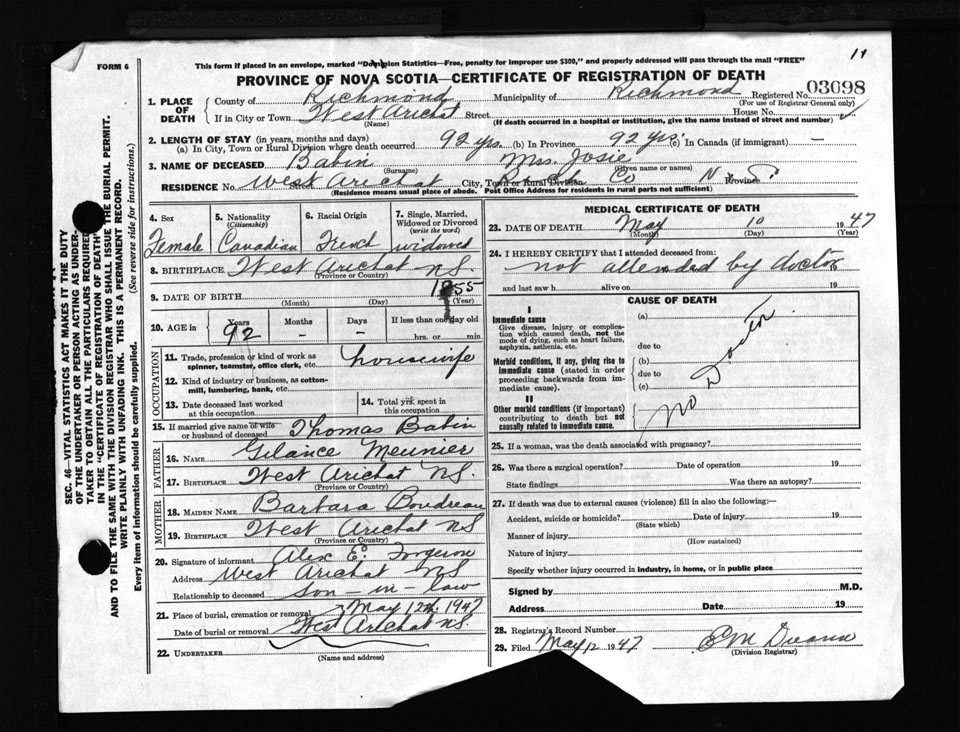 11
This form if placed in an envelope, marked "Dominion Statistics—Free, penalty for improper use $300," and properly addressed will pass through the mail "FREE"
FORM 6
PROVINCE OF NOVA SCOTIA—CERTIFICATE OF REGISTRATION OF DEATH
1. PLACE OF DEATH
County of Richmond Municipality of Richmond Registered No. 03098
(For use of Registrar General only)
If in City or Town West Arichat Street House No.
(Name) (If death occurred in a hospital or institution, give the name instead of street and number)
2. LENGTH OF STAY (in years, months and days)
(a) In City, Town or Rural Division where death occurred 92 yrs. (b) In Province 92 yrs. (c) In Canada (if immigrant) —
3. NAME OF DECEASED Babin Mrs. Josie
(Surname) (Given name or names)
RESIDENCE No. West Arichat City, Town or Rural Division Co N.S. Province
(Residence means usual place of abode. Post Office Address for residents in rural parts not sufficient)
4. Sex Female
5. Nationality (Citizenship) Canadian
6. Racial Origin French
7. Single, Married, Widowed or Divorced (write the word) widowed
8. BIRTHPLACE West Arichat N.S.
(Province or Country)
9. DATE OF BIRTH 1855
(Month) (Day) (Year)
10. AGE in Years 92 Months - Days - If less than one day old
hrs. or min.
OCCUPATION
11. Trade, profession or kind of work as spinner, teamster, office clerk, etc. housewife
12. Kind of industry or business, as cotton-mill, lumbering, bank, etc.
13. Date deceased last worked at this occupation
14. Total yrs. spent in this occupation
15. If married give name of wife or husband of deceased Thomas Babin
FATHER
16. NAME Gelance Meunier
17. BIRTHPLACE West Arichat N.S.
(Province or Country)
MOTHER
18. MAIDEN NAME Barbara Boudreau
19. BIRTHPLACE West Arichat N.S.
(Province or Country)
20. Signature of informant Alex E. Forgeron
Address West Arichat N.S.
Relationship to deceased son-in-law
21. Place of burial, cremation or removal May 12th, 1947
Date of burial or removal West Arichat N.S.
22. UNDERTAKER
(Name and address)
MEDICAL CERTIFICATE OF DEATH
23. DATE OF DEATH May 10 1947
(Month) (Day) (Year)
24. I HEREBY CERTIFY that I attended deceased from:
not attended by doctor 19
and last saw h alive on 19
CAUSE OF DEATH
I
Immediate cause
Give disease, injury or complication which caused death, not the mode of dying, such as heart failure, asphyxia, asthenia, etc.
Morbid conditions, if any, giving rise to immediate cause (stated in order proceeding backwards from immediate cause).
II
Other morbid conditions (if important) contributing to death but not causally related to immediate cause.
(a)
due to
(b)
due to
(c)
no Doctor
25. If a woman, was the death associated with pregnancy?
26. Was there a surgical operation? Date of operation 19
State findings Was there an autopsy?
27. If death was due to external causes (violence) fill in also the following:—
Accident, suicide or homicide? Date of injury 19
(State which)
Manner of injury
(How sustained)
Nature of injury
Specify whether injury occurred in industry, in home, or in public place
Signed by M.D.
Address Date 19
28. Registrar's Record Number
29. Filed May 12 1947
(Division Registrar)
SEC. 46—VITAL STATISTICS ACT MAKES IT THE DUTY
OF THE UNDERTAKER OR PERSON ACTING AS UNDER-
TAKER TO OBTAIN ALL THE PARTICULARS REQUIRED
IN THE "CERTIFICATE OF REGISTRATION OF DEATH"
AND TO FILE THE SAME WITH THE DIVISION REGISTRAR WHO SHALL ISSUE THE BURIAL PERMIT.
WRITE PLAINLY WITH UNFADING INK. THIS IS A PERMANENT RECORD.
Every item of information should be carefully supplied. (See reverse side for instructions.)